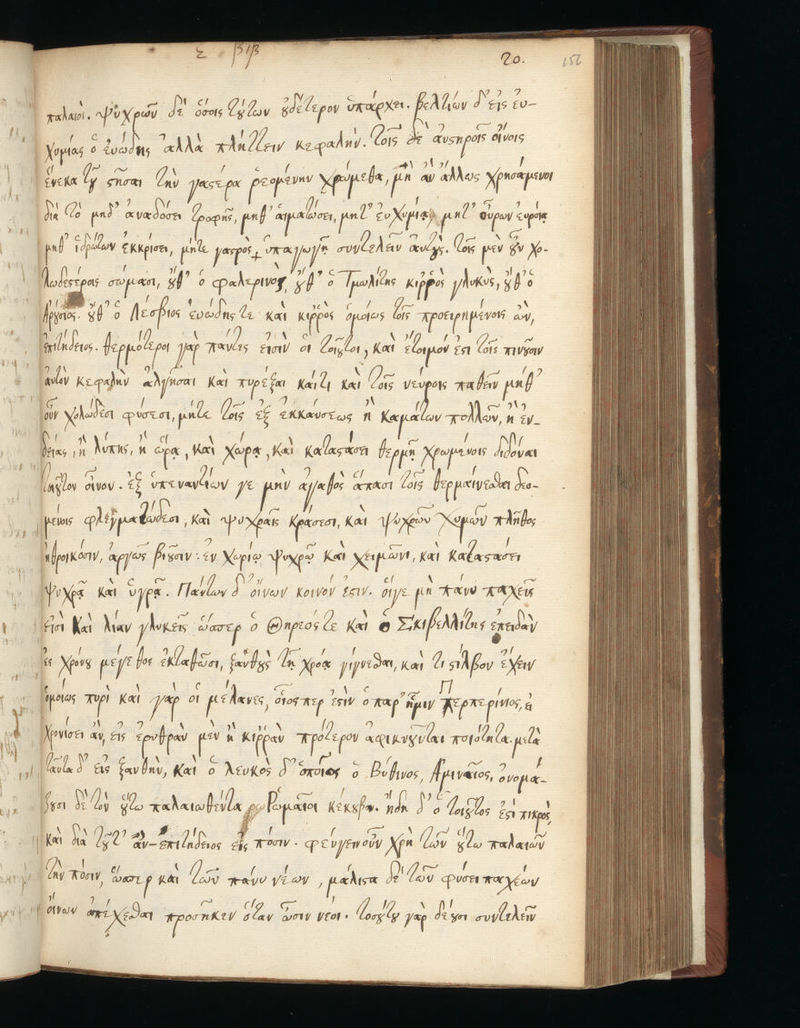 Σ βιβ 20. 156
παλαιοὶ. ψυχρῶν δὲ ὅσοις τȣ́των ȣ̓δέτερον ὑπάρχει. βελτίων δ' εἰς εὐ-
χυμίας ὁ εὐώδης ἀλλὰ πλήττειν κεφαλὴν. τοῖς δὲ αὐστηροῖς οἴνοις
ἕνεκα τȣ͂ στῆσαι τὴν γαστέρα ῥεομένην χρώμεθα, μὴ ἂν ἄλλως χρησάμενοι
διὰ τὸ μηδ' ἀναδόσει τροφῆς, μηθ' αἱματώσει, μητ' εὐχυμία, μητ' οὔρων εὐροία
μηθ' ἱδρώτων ἐκκρίσει, μήτε γαστρὸς ὑπαγωγῇ συντελεῖν αὐτȣ́ς. τοῖς μὲν ȣ͂ν χο-
λωδεστέροις σώμασι, ȣ̓́θ' ὁ φαλερινὸς ȣ̓́θ' ὁ Τμωλίτης κιῤῥὸς γλυκὺς, ȣ̓́θ' ὁ
Ἀρȣ́σιος. ȣ̓́θ' ὁ Λέσβιος εὐώδης τε καὶ κιῤῥὸς ὁμοίως τοῖς προειρημένοις ἂν,
ἐπιτήδειος. θερμότεροι γὰρ πάντες εἰσὶν οἱ τοιȣ͂τοι, καὶ ἕτοιμόν ἐστι τοῖς πινȣ́σιν
αὐτὸν κεφαλὴν ἀλγῆσαι καὶ πυρέξαι καίτι καὶ τοῖς νεύροις παθεῖν μήθ'
οὖν χολώδεσι φύσεσι, μήτε τοῖς ἐξ ἐκκαύσεως ἢ καμάτων πολλῶν, ἢ ἐν-
δείας, ἢ λύπης, ἢ ὥρᾳ, καὶ χώρᾳ, καὶ καταστάσει θερμῇ χρωμένοις διδόναι
τοιȣ͂τον οἶνον. ἐξ ὑπεναντίων γε μὴν ἀγαθὸς ἅπασι τοῖς θερμαίνεσθαι δεο-
μένοις φλεγματώδεσι, καὶ ψυχραῖς κράσεσι, καὶ ψυχρῶν χυμῶν πλῆθος
ἠθροικόσιν, ἀργῶς βιȣ͂σιν· ἐν χωρίῳ ψυχρῷ καὶ χειμῶνι, καὶ καταστάσει
ψυχρᾷ καὶ ὑγρᾷ. Πάντων δ' οἴνων κοινόν ἐστιν. οἵγε μὴ πάνυ παχεῖς
εἰσὶ καὶ λίαν γλυκεῖς ὥσπερ ὁ Θηρεός τε καὶ ὁ Σκιβελλίτης ἐπειδὰν
ἐς χρόνȣ μέγεθος ἐκταθῶσι, ξανθȣ̀ς τῇ χρόᾳ γίγνεσθαι, καὶ τι στίλβον ἔχειν
ὁμοίως πυρὶ καὶ γὰρ οἱ μέλανες, οἷοσπερ ἐστὶν ὁ παρ' ἡμῖν Περπερίνιος, εἰ
χρονίσει ἂν, εἰς ἐρυθρὰν μὲν ἢ κιῤῥὰν πρότερον ἀφικνȣ͂νται ποιότητα. μετὰ
ταῦτα δ' εἰς ξανθὴν, καὶ ὁ λευκὸς δ' ὁποῖος ὁ Βύθινος, Ἀμιναῖος, ὀνομά-
ζȣσι δὲ τὸν ȣ̔́τω παλαιωθέντα Ῥωμαῖοι κέκȣβον. ἤδη δ' ὁ τοιȣ͂τος ἐστὶ πικρὸς
καὶ διὰ τȣ͂τ' ἀν-επιτήδειος εἰς πόσιν. φεύγειν οὖν χρὴ τῶν ȣ̔́τω παλαιῶν
τὴν πόσιν, ὥσπερ καὶ τῶν πάνυ νέων, μάλιστα δὲ τῶν φύσει παχέων
οἴνων ἀπέχεσθαι προσῆκεν ὅταν ὦσιν νέοι. τοσȣ́τȣ γὰρ δέȣσι συντελεῖν